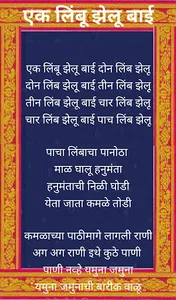 एक लिंबू झेलू बाई
एक लिंबू झेलू बाई दोन लिंब झेलू
दोन लिंब झेलू बाई तीन लिंब झेलू
तीन लिंब झेलू बाई चार लिंब झेलू
चार लिंब झेलू बाई पाच लिंब झेलू
पाचा लिंबाचा पानोठा
माळ घालू हनुमंता
हनुमंताची निळी घोडी
येता जाता कमळे तोडी
कमळाच्या पाठीमागे लागली राणी
अग अग राणी इथे कुठे पाणी
पाणी नव्हे यमुना जमुना
यमुना जमुनाची बारीक वाळू